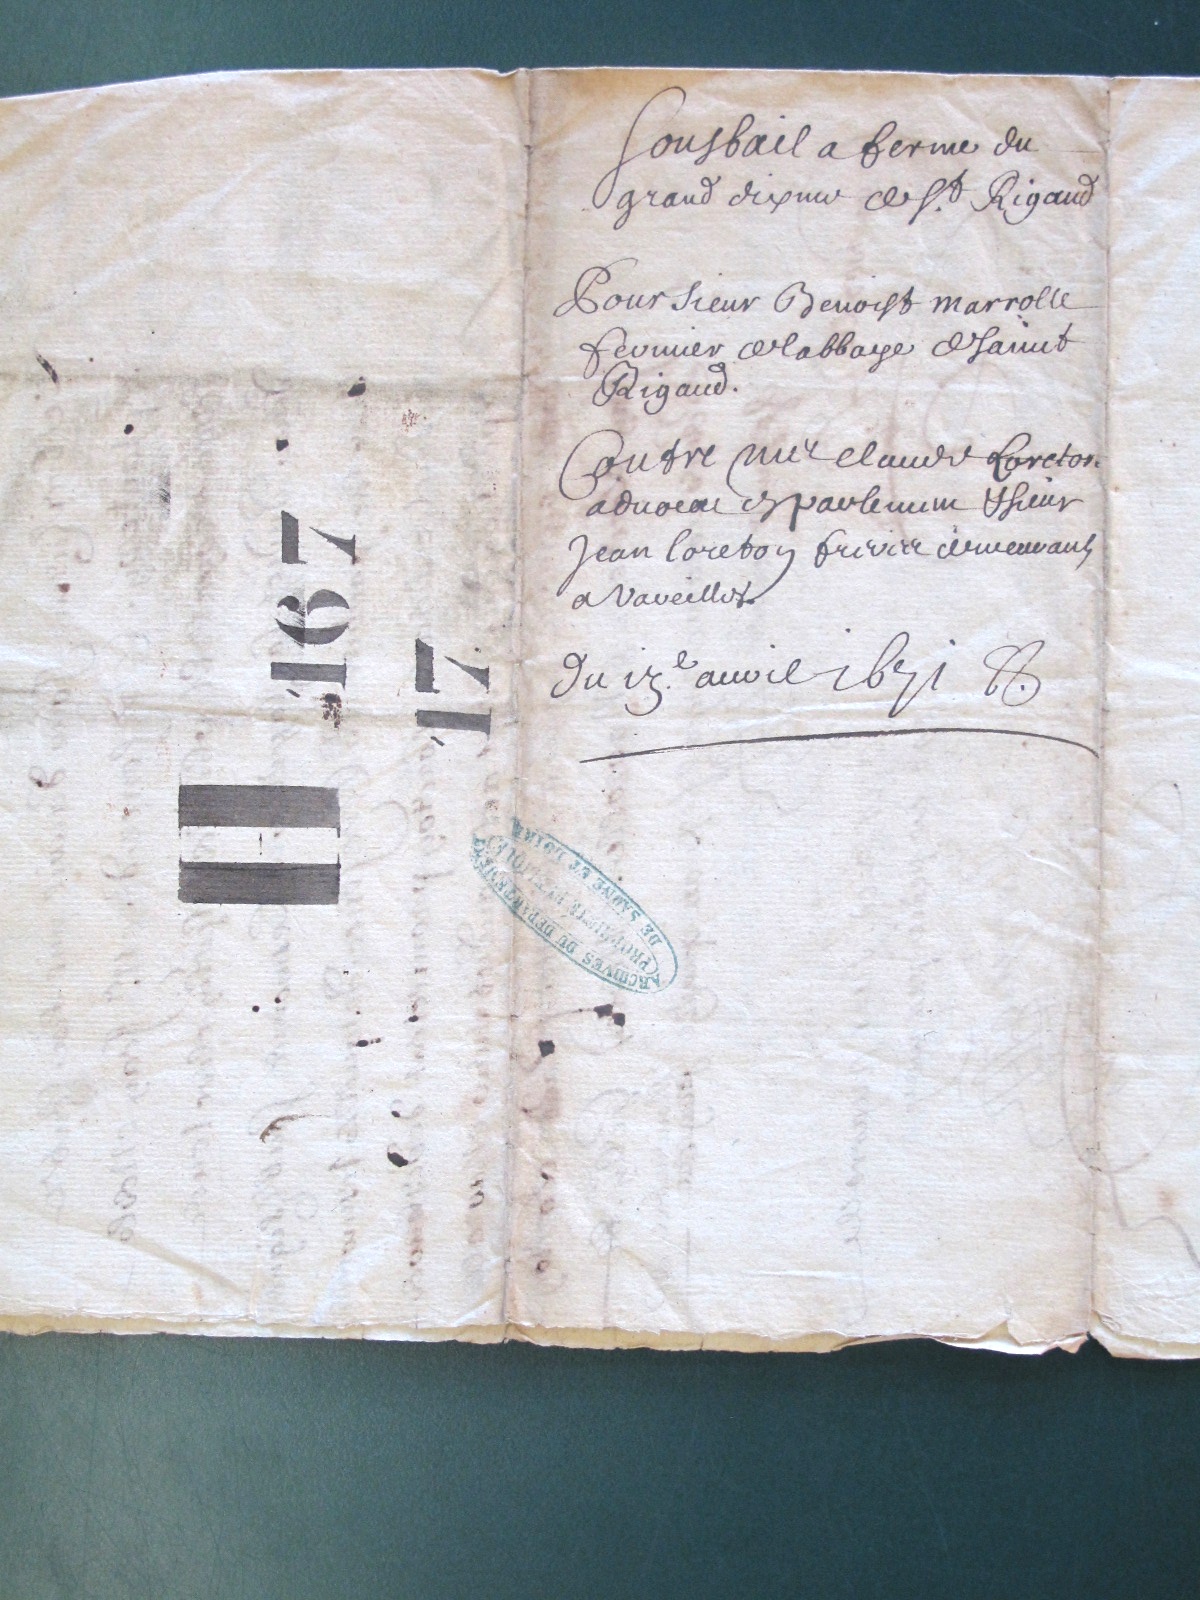 Sousbail a ferme du
grand dixme de St Rigaud
Pour sieur Benoist marrolle
fermier de labbaye de saint
Rigaud.
Contre Mre claude Loreton
advocat en parlement & sieur
Jean loreton frere demeurants
a Vareilles.
du 13e avril 1671
H 167
17
ARCHIVES DU DÉPARTEMENT
(PROPRIÉTÉ PUBLIQUE)
DE SAONE ET LOIRE